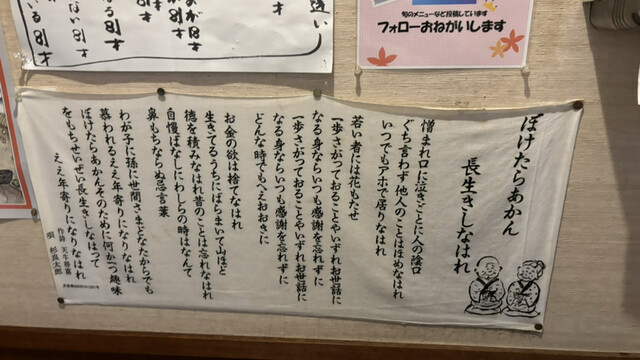 違い
81才
81才
81才
旬のメニューなど投稿しています
フォローおねがいします
ぼけたらあかん
長生きしなはれ
憎まれ口に泣きごとに人の陰口
ぐち言わず他人のことはほめなはれ
いつでもアホで居りなはれ
若い者には花もたせ
一歩さがつておることやいずれお世話に
なる身ならいつも感謝を忘れずに
一歩さがつておることやいずれお世話に
なる身ならいつも感謝を忘れずに
どんな時でもへえおおきに
お金の欲は捨てなはれ
生きてるうちにばらまいて山ほど
徳を積みなはれ昔のことは忘れなはれ
自慢ばなしにわしらの時はなんて
鼻もちならぬ忌言葉
わが子に孫に世間さまどなたからでも
慕われるええ年寄りになりなはれ
ぼけたらあかんそのために何か一つ趣味
をもちせいぜい長生きしなはって
ええ年寄りになりなはれ
作詩 天牛将富
唄 杉良太郎